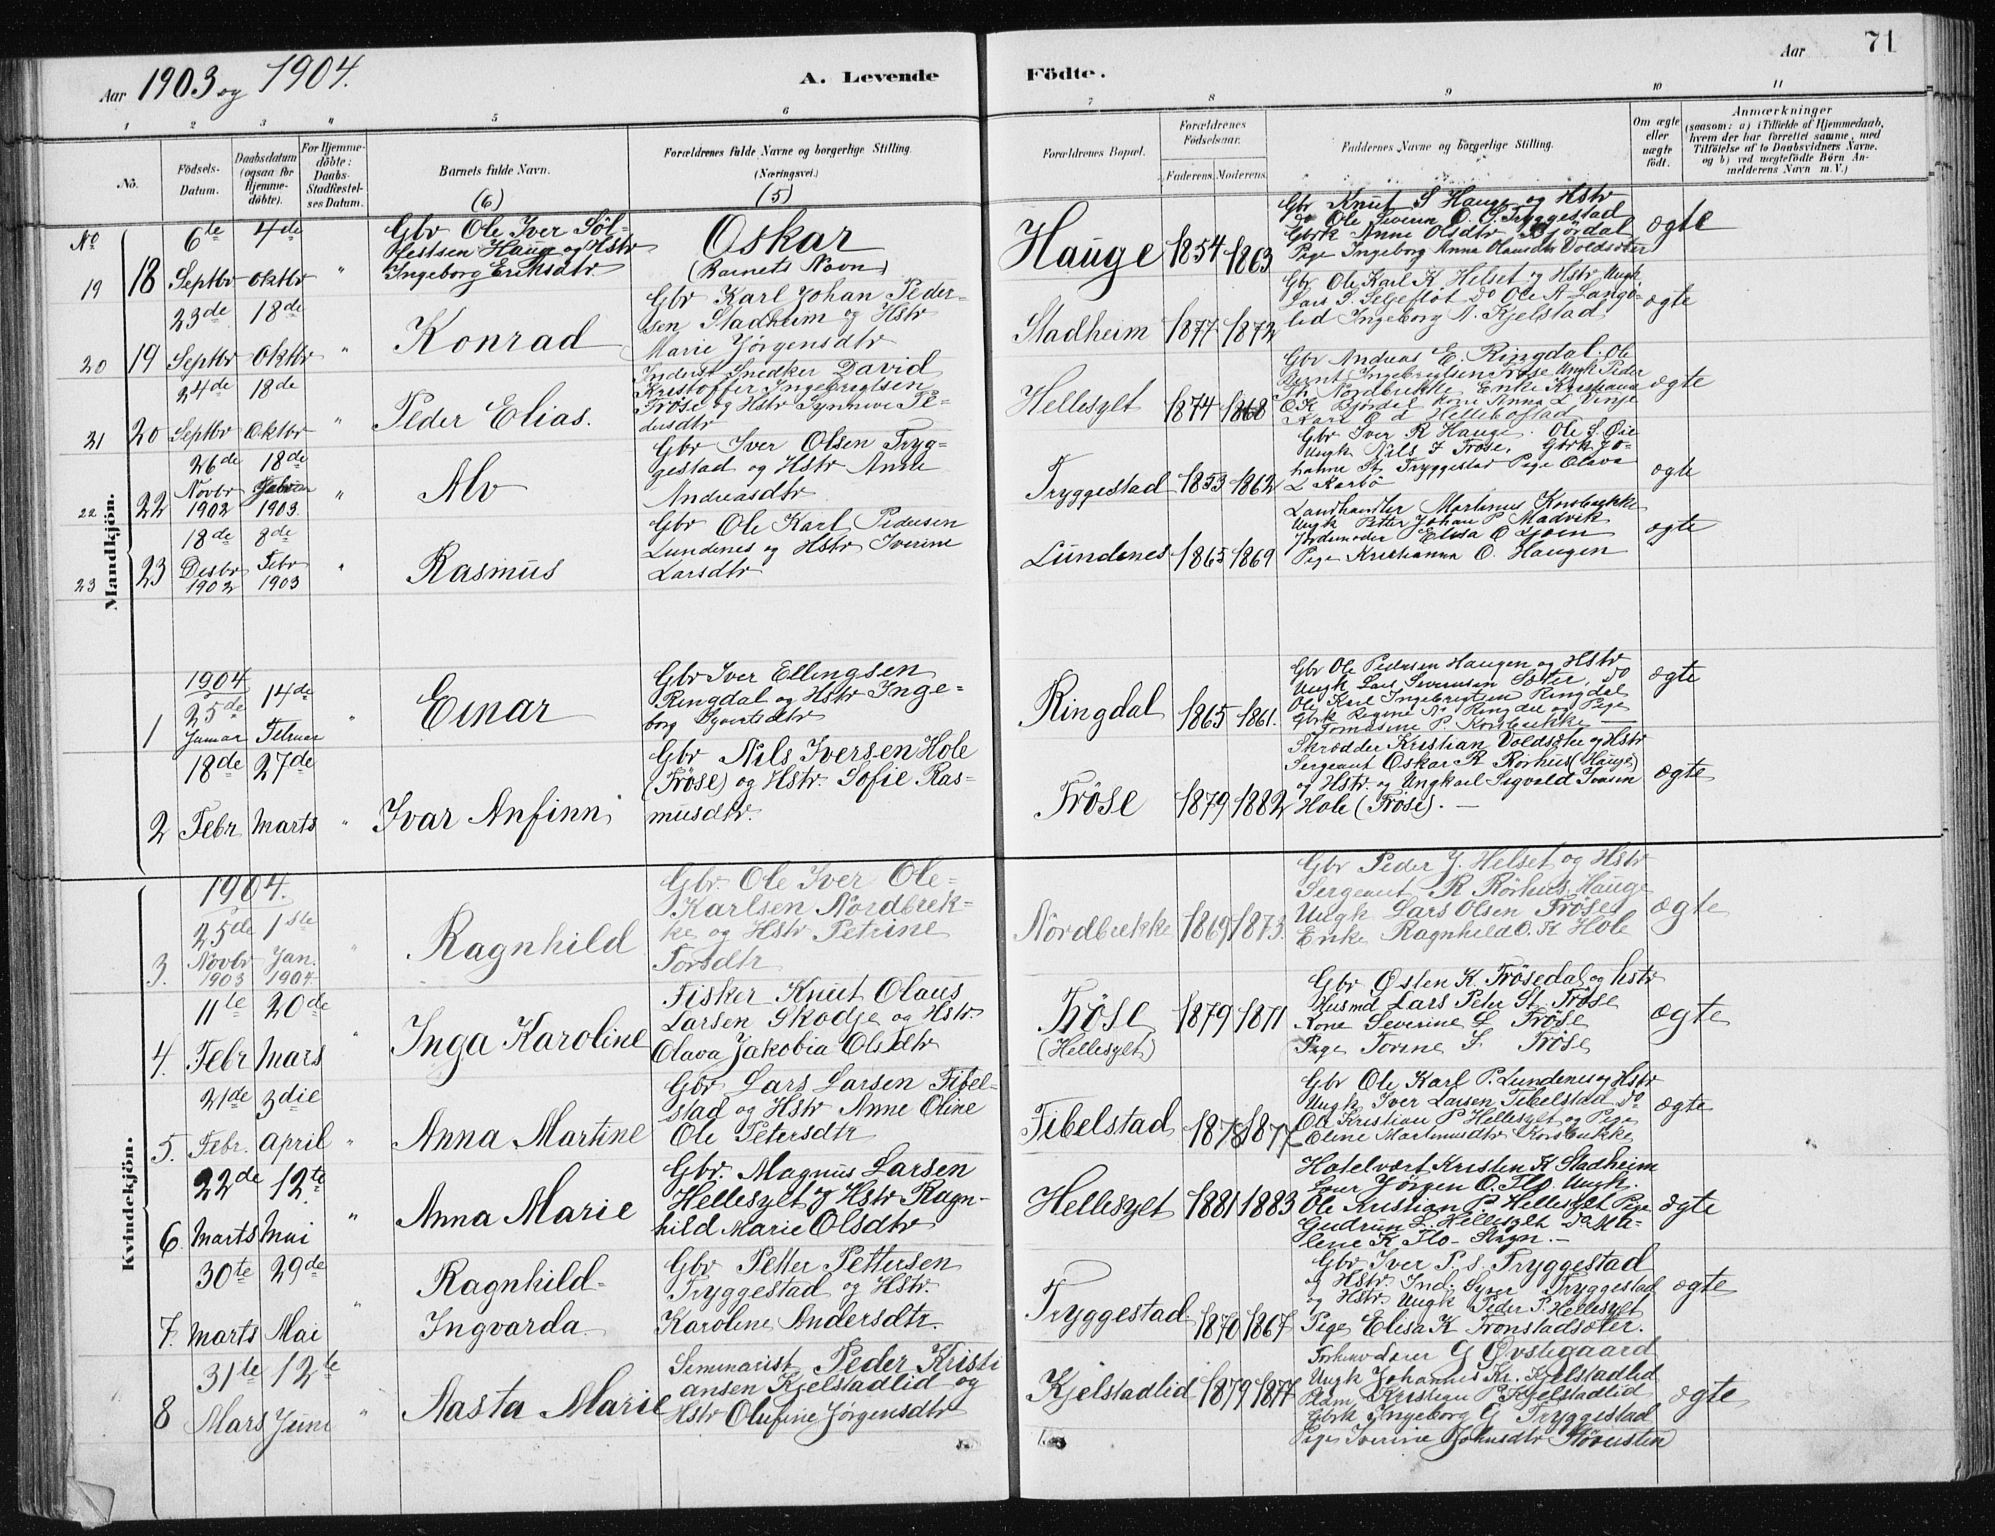 Aar 1903 og 1904.
A. Levende
Födte.
Aar
71
1 2 3 " 5 6
7 8 9 10 11
No.
Födsels-
Datum.
Daabsdatum
(ogsaa for
Hjemme-
döbte).
For Hjemme-
döbte:
Daabs-
Stadfæstel-
ses Datum.
Barnets fulde Navn.
(6)
Forældrenes fulde Navne og borgerlige Stilling.
(Næringsvei.)
(5)
Forældrenes Bopæl.
Forældrenes
Födselsaar.
Faderens. Moderens.
Faddernes Navne og borgerlige Stilling.
Om ægte
eller
uægte
födt.
Anmærkninger
(saasom: a) i Tilfælde af Hjemmedaab,
hvem der har forrettet samme, med
Tilföielse af to Daabsvidners Navne,
og b) ved uægtefödte Börn An-
melderens Navn m.V.)
Mandkjön.
No
19 18 6te Septbr 4de Oktbr "
Gbr Ole Iver Söl-
festsen Hauge og Hstr
Ingeborg Eriksdtr
Oskar
(Barnets Navn)
Hauge 1854 1863
Gbr Knut S Hauge og Hstr
do Ole Severin O. S. Tryggestad
Gbrk Anne Olsdtr Björdal
Pige Ingeborg Anna Olausdtr Voldsæter
ægte
20 19 23de Septbr 18de Oktbr "
Konrad
Gbr Karl Johan Peder-
sen Stadheim og Hstr
Marie Jörgensdtr
Stadheim 1877 1872
Gbr Ole Karl K Helset og Hstr Ungk
Lars S. Seljeflot Do Ole A Langö-
lid Ingeborg A. Kjelstad
ægte
21 20 24de Septbr 18de Oktbr "
Peder Elias.
Inderst Snedker David
Kristoffer Ingebrigtsen
Fröse og Hstr Synnive Pe-
dersdtr
Hellesylt 1874 1868
Gbr Andreas E. Ringdal. Ole
Bernt Ingebrigtsen Fröse Ungk Peder
Th Nordbrekke Enke Kristiana
O K Björdal Kone Anna L Vinje
Karl O d Hellebostad
ægte
22 22 26de Novbr 1902 18de 1903. "
Alv
Gbr Iver Olsen Tryg-
gestad og Hstr Anne
Andreasdtr
Tryggestad 1853 1862
Gbr Iver R Hauge. Ole S. Öie
Ungk Nils J Fröse. Gbrk Jo-
hanne St. Tryggestad Pige Olava
L Karbö
ægte
23 23 18de Desbr 1902 8de Febr 1903 "
Rasmus
Gbr Ole Karl Pedersen
Lundenes og Hstr Iverine
Larsdtr
Lundenes 1865 1869
Landhandler Martinus Korsbrekke
Ungk Petter Johan P Madvik
Jordemoder Elisa O Ljöen
Pige Kristianna O. Haugen
ægte
1 1904 25de Januar 14de Februar "
Einar
Gbr Iver Ellingsen
Ringdal og Hstr Inge-
borg Syvertsdtr
Ringdal 1865 1861.
Gbr Ole Pedersen Haugen og Hstr
Ungk Lars Severinsen Sæter, Do
Ole Karl Ingebrigtsen Ringdal
Gbrk Regine N Ringdal og Pige
Tomasine P Korsbrekke
ægte
2 18de Febr 27de Marts "
Ivar Anfinn
Gbr Nils Iversen Hole
(Fröse) og Hstr. Sofie Ras-
musdtr.
Fröse 1879 1882
Skrædder Kristian Voldsæter og Hstr
Sergeant Oskar R Rörhus (Hauge)
og Hstr. og Ungkarl Sigvald Iversen
Hole (Fröse). —
ægte
Kvindekjön.
1904.
3. 25de Novbr 1903 1ste Jan. 1904 "
Ragnhild
Gbr. Ole Iver Ole-
Karlsen Nordbrek-
ke og Hstr Petrine
Torsdtr
Nordbrekke 1869 1873
Gbr Peder J. Helset og Hstr
Sergeant R Rörhus Hauge
Ungk Lars Olsen Fröse
Enke Ragnhild O. K Hole
ægte
4. 11te Febr 20de Mars "
Inga Karoline
Fisker Knut Olaus
Larsen Skodje og Hstr.
Olava Jakobia Olsdtr
Fröse
(Hellesylt)
1879 1871
Gbr Östen K. Frösedal og hstr
Husmd Lars Peter St. Fröse
Kone Severine L Fröse
Pige Torine L Fröse
ægte
5. 21de Febr. 3die April "
Anna Martine
Gbr Lars Larsen Fibel-
stad og Hstr Anne Oline
Ole Petersdtr
Fibelstad 1878 1877
Gbr Ole Karl P. Lundenes og Hstr
Ungk Iver Larsen Fibelstad Do
Ole Kristian P Hellesylt og Pige
Eline Martinusdtr Korsbrekke
ægte
6 22de Marts 12te Mai "
Anna Marie
Gbr. Magnus Larsen
Hellesylt og Hstr Ragn-
hild Marie Olsdtr
Hellesylt 1881 1883
Hotelvært Kristen K Stadheim
Lærer Jörgen O. Flo. Ungk.
Ole Kristian P. Hellesylt Pige
Gudrun L. Hellesylt Do Ma-
lene K Flo- Stryn. —
ægte
7. 30te Marts 29de Mai "
Ragnhild-
Ingvarda
Gbr Petter Pettersen
Tryggestad og Hstr.
Karoline Andersdtr.
Tryggestad 1870 1867
Gbr Iver P. S. Tryggestad
og Hstr. Ind. Syver Tryggestad
og Hstr. Ungk Peder P. Hellesylt
Pige Elisa K Tronstadsæter.
ægte
8 31te Mars 12te Juni "
Aasta Marie
Seminarist Peder Kristi
ansen Kjelstadlid og
Hstr Olufine Jörgensdtr
Kjelstadlid 1879 1877
Forhenv Lærer G Övstegaard
Ungk Johannes Kr. Kjelstadlid
Pldm Kristian P Kjelstadlid
Gbrk Ingeborg G Tryggestad
Pige Iverine Johnsdtr
ægte